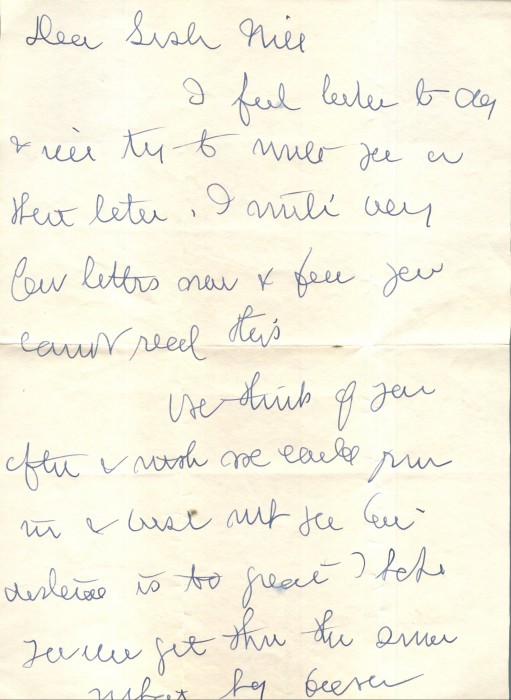 Dear
I feel better to day
& will try to write you a
short letter. I write very
few letters now & fear you
cannot read this
We think of you
often & wish we could run
in & visit with you but
distance is too great I hope
you will get thru the